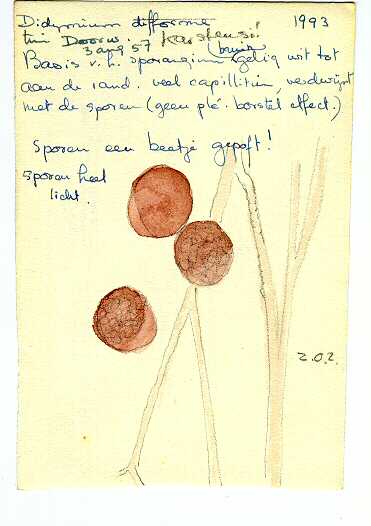 Didymium difforme 1993
tuin Doorw. Karstensii
3 aug 57 (bruin
Basis v. h. sporangium gelig wit tot
aan de rand. veel capillitium, verdwijnt
met de sporen (geen plé. borstel effect.)
Sporen een beetje gepoft!
Sporen heel
licht.
Z.O.Z.